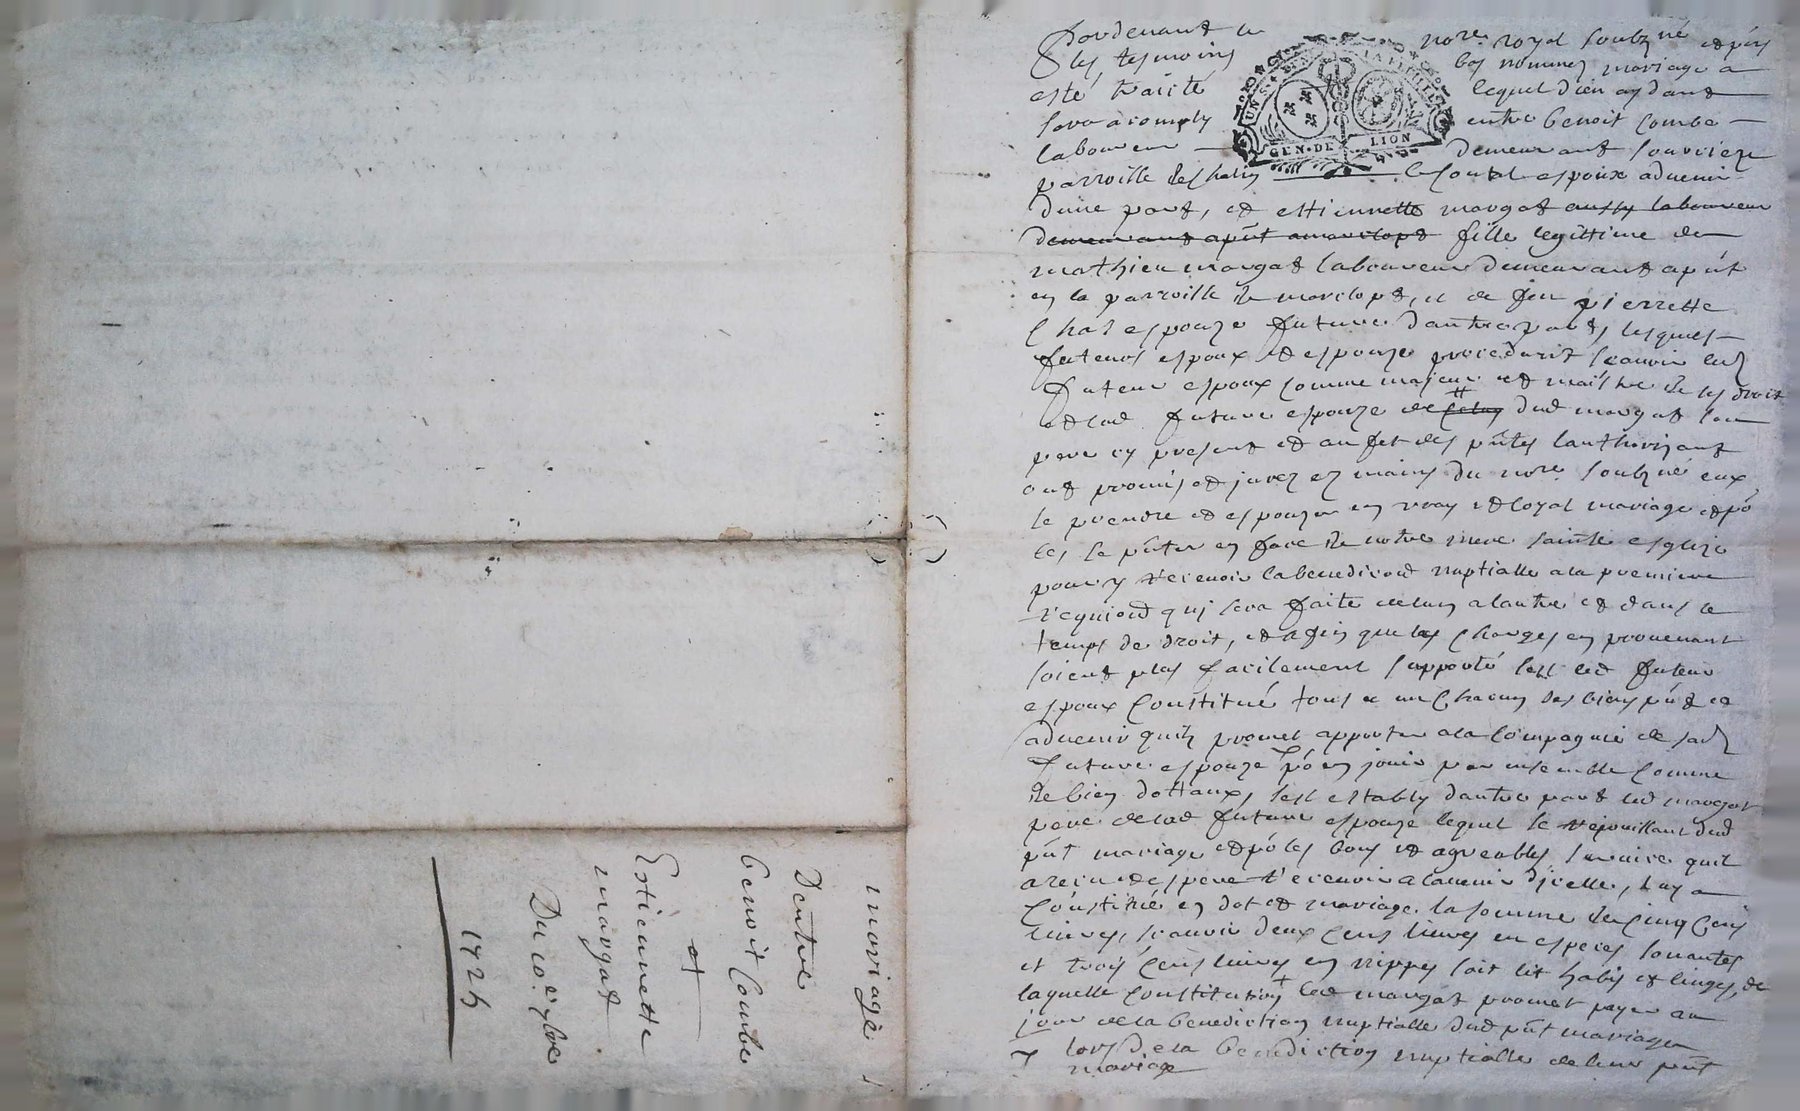 Pardevant le nore. royal soubzné et pñs
les tesmoins bas nommez mariage a
esté traicté lequel dieu aydant
sera acomply entre benoit Combe
laboureur demeurant
parroisse de le futur espoux advenir
dune part, et estiennette margat aussy laboureur
demeurant apñt a marclopt fille legittime de
mathieu margat laboureur demeurant apñt
en la parroisse de marclopt, et de feu pierrette
Chas espouze future dautre part, lesquels
futeurs espoux et espouze procedants scavoir led
futeur espoux comme majeur et maistre de ses droit
et lad future espouze de dud margat son
pere cy present et au fet des pñtes lauthorizant
ont promis et jurez ez mains du nore. soubzné eux
se prendre et espouzer en vray et loyal mariage et po
ce, se pñter en face de notre mere sainte esglize
pour y recevoir la benediction nuptialle a la premiere
requisiod qui sera faite de lun a lautre et dans le
temps de droit, et afin que les charges en provenant
soient plus facilement supporté sest led futeur
espoux constitué tous et un chacun ses biens pñt et
advenir quil promet apporter a la compagnie de sad
future espouze po en jouir par ensemble comme
de bien dottaux, sest estably dautre part led margat
pere de lad future espouze lequel se rejouissant dud
pñt mariage et po les bons et agreables service quil
a receu et espere recevoir a ladvenir dicelle, luy a
constitué en dot et mariage la somme de cinq cens
livres, scavoir deux cens livres en especes sonantes
et trois cens livres en nippes soit lit habis et linges, de
laquelle constitution led margat promet payer au
jour de la benediction nuptialle dud pñt mariage
lors de la benediction nuptialle de leur pñt
mariage
UN S. DEN. LA FEUILLE
GEN. DE LION
mariage
Dentre
benoit Combe
et
Estiennette
margat
Du 10.e xbre
1725